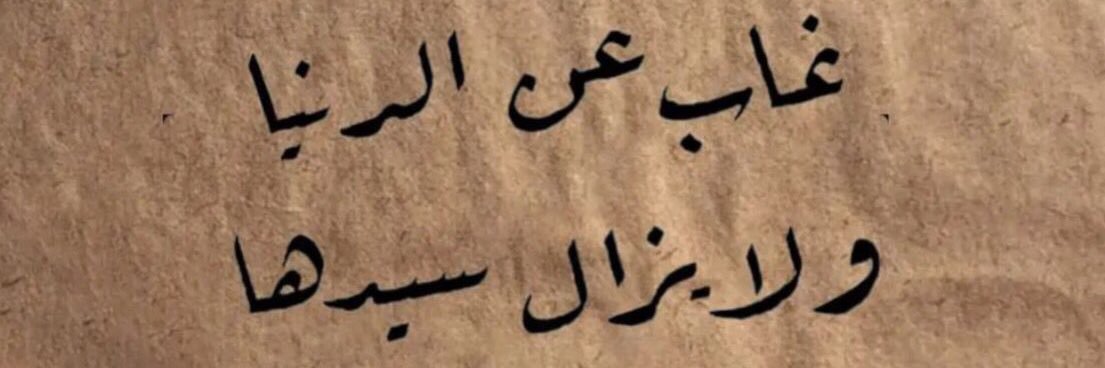 غاب عن الدنيا
ولا يزال سيدها